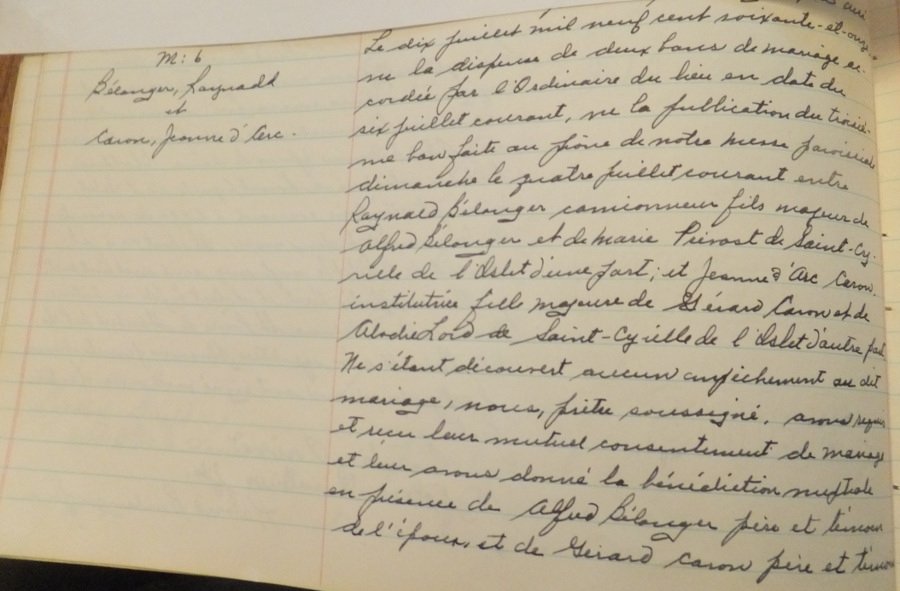 M: 6
Bélanger, Raynald
et
Caron, Jeanne d'Arc.
Le dix juillet mil neuf cent soixante-et-onze
vu la dispense de deux bans de mariage ac-
cordée par l'Ordinaire du lieu en date du
six juillet courant, vu la publication du troisiè-
me ban faite au prône de notre messe paroissiale
dimanche le quatre juillet courant entre
Raynald Bélanger camionneur fils majeur de
Alfred Bélanger et de Marie Prévost de Saint-Cy-
rille de l'Islet d'une part; et Jeanne d'Arc Caron,
institutrice fille majeure de Gérard Caron et de
Alodie Lord de Saint-Cyrille de l'Islet d'autre part
Ne s'étant découvert aucun empêchement au dit
mariage, nous, prêtre soussigné, avons requis
et reçu leur mutuel consentement de mariage
et leur avons donné la bénédiction nuptiale
en présence de Alfred Bélanger père et témoin
de l'époux, et de Gérard Caron père et témoin